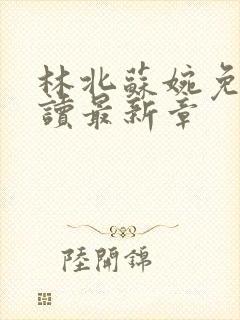 林北蘇婉免
讀最新章
陸開錦